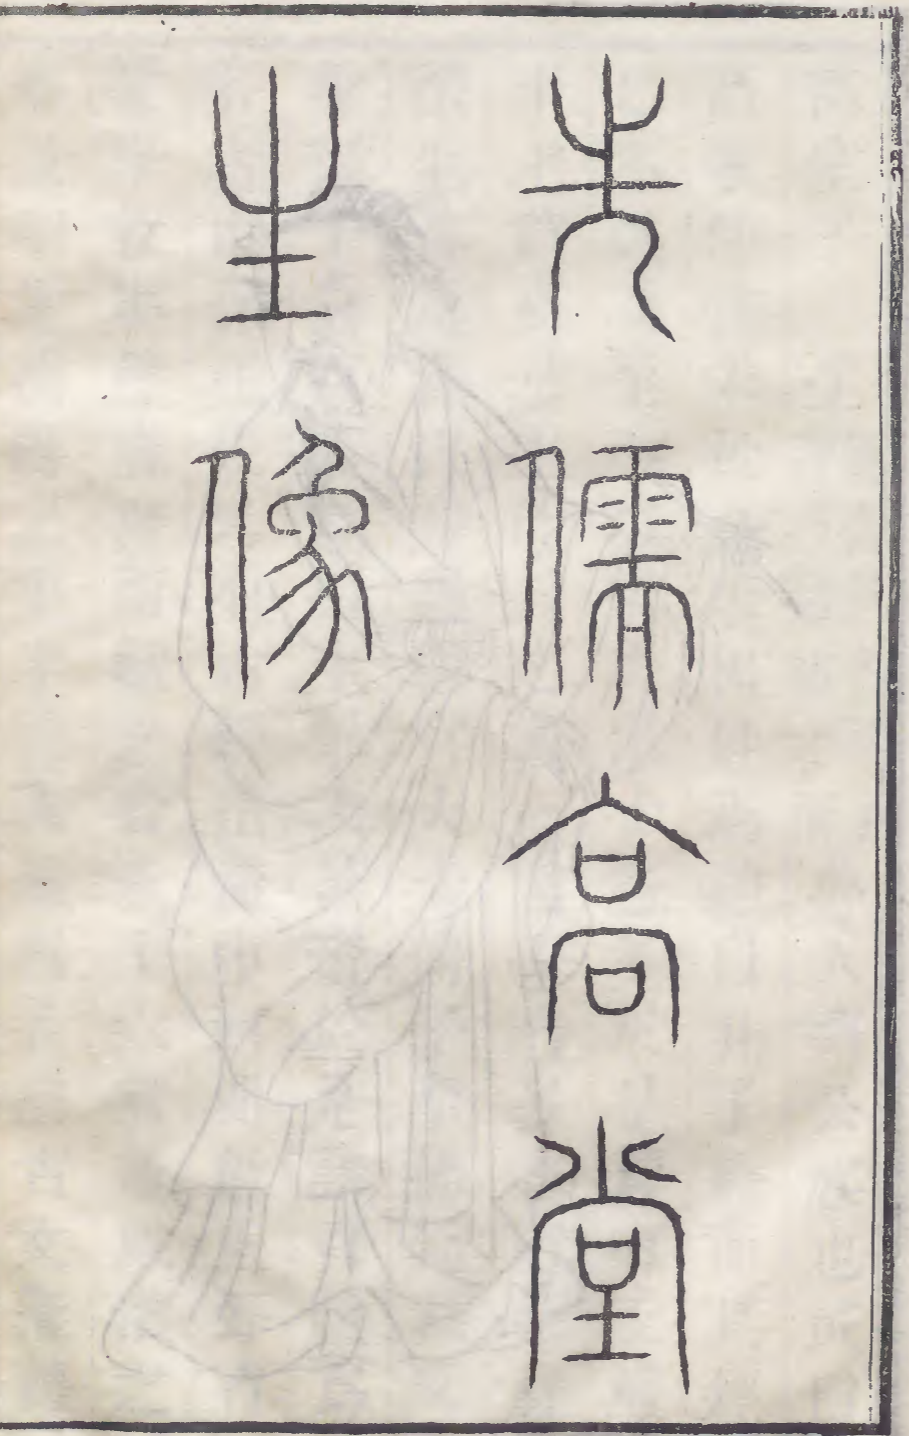 先儒高堂
生像